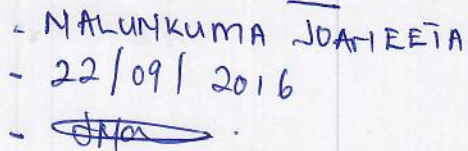 - NALUMKUMA JOANEETA
- 22/09/2016
-